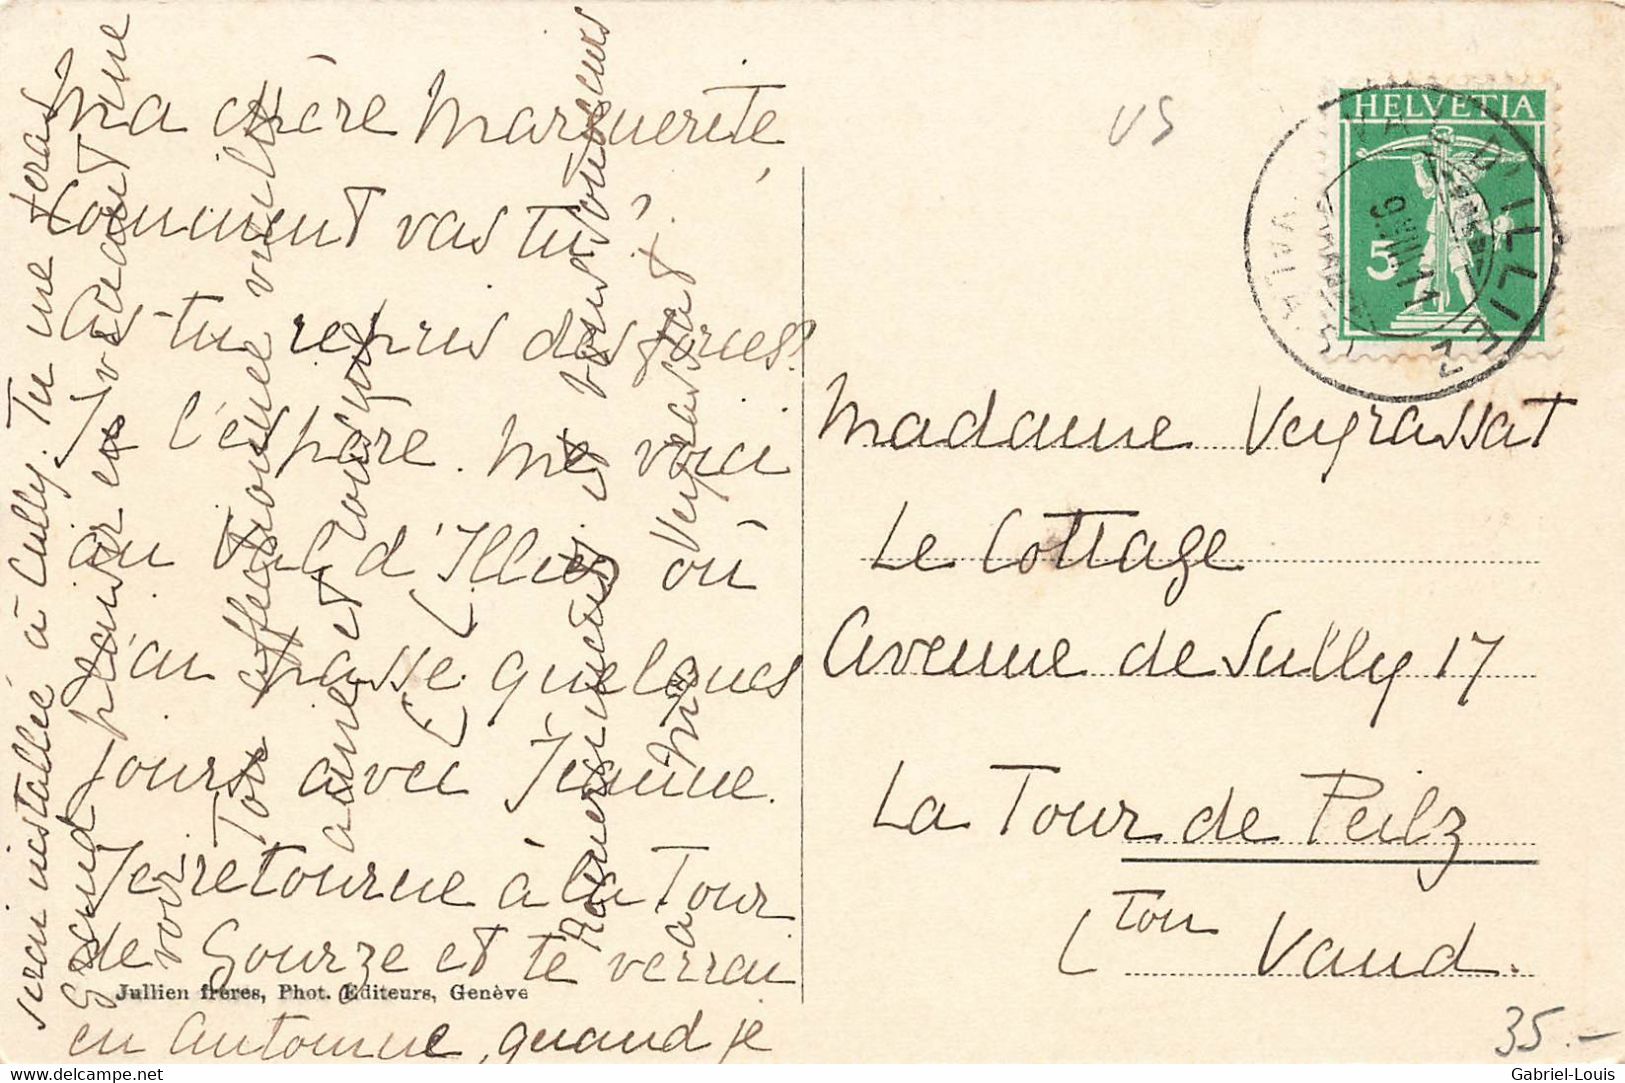 Ma chère Marguerite,
Comment vas tu?
As-tu repris des forces?
Je l'espère. Me voici
au Val d'Illiez où
j'ai passé quelques
jours avec Jeanne.
Je retourne à la Tour
de Gourze et te verrai
en automne, quand je
serai installée à Cully. Tu me feras
grand plaisir en venant me
voir
Ton affectionnée vieille
amie et
affectueux et bons souvenirs
à Mr Veyrassat
Jullien frères, Phot. Editeurs, Genève
US
HELVETIA
5
VAL D'ILLIEZ
9.VIII.11
(VALAIS)
Madame Veyrassat
Le Cottage
Avenue de Sully 17
La Tour de Peilz
Cton Vaud.
35.-
delcampe.net
Gabriel-Louis